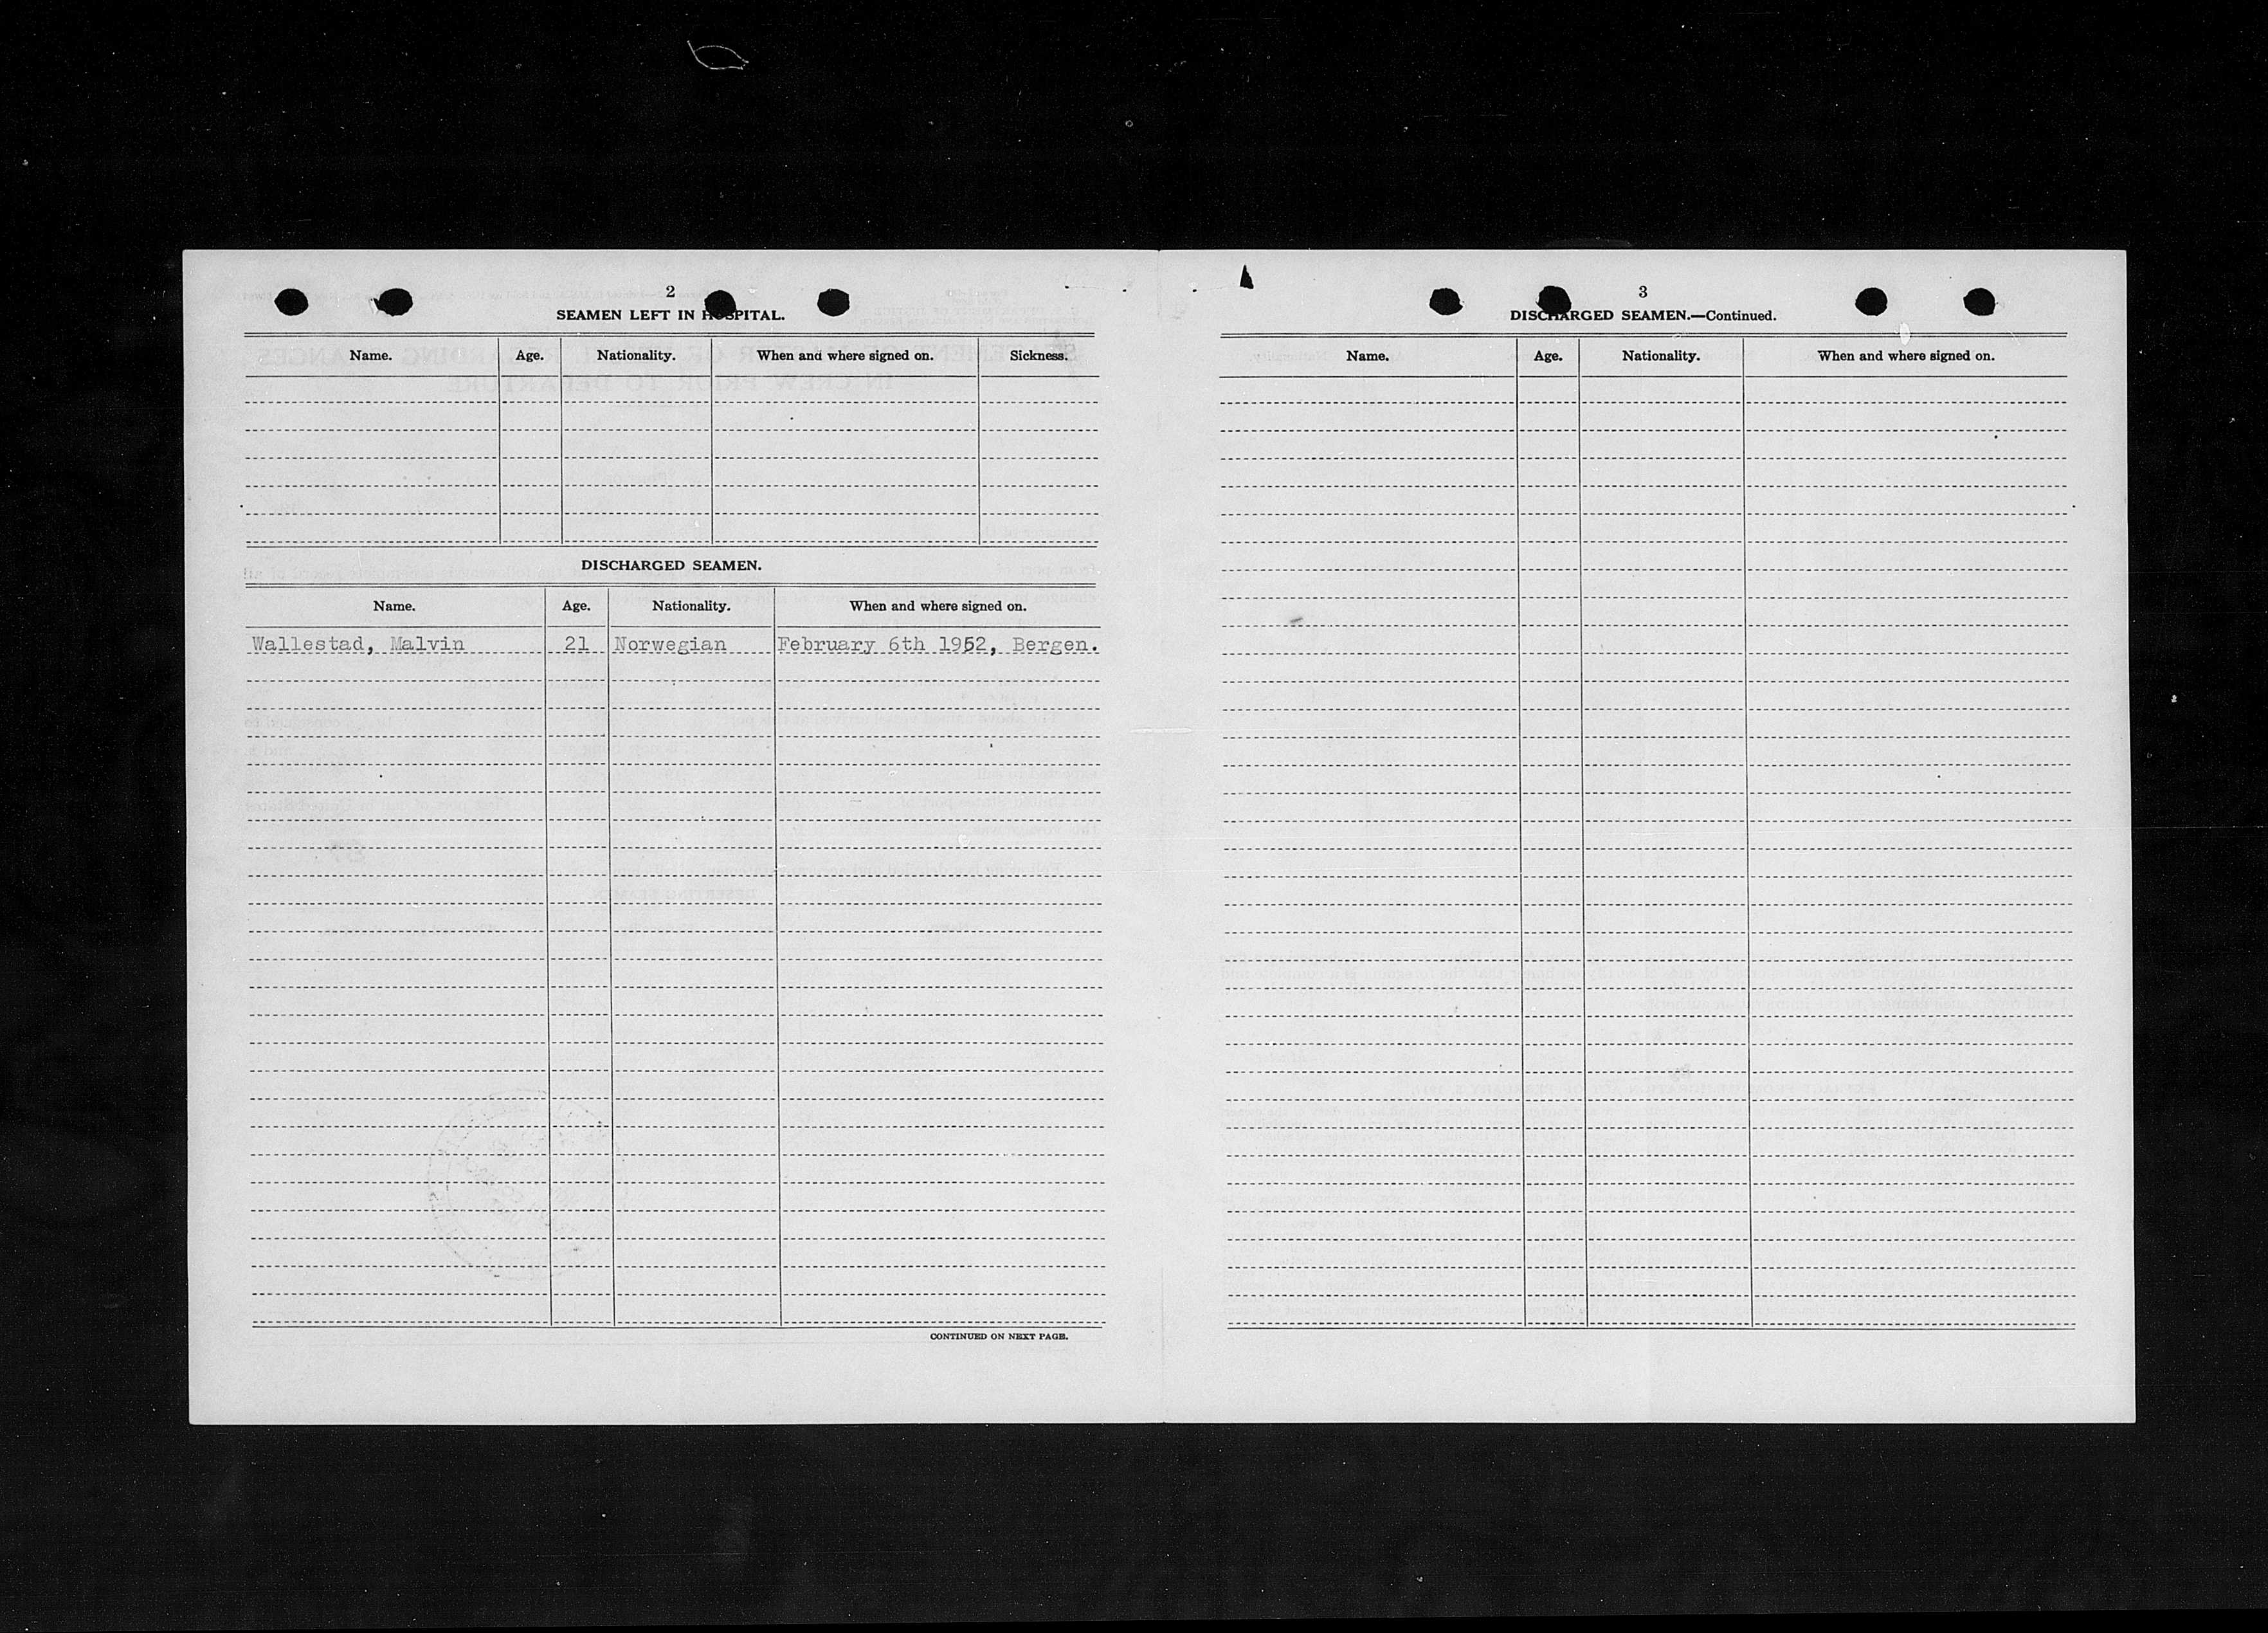 2
SEAMEN LEFT IN HOSPITAL.
Name. Age. Nationality. When and where signed on. Sickness.
DISCHARGED SEAMEN.
Name. Age. Nationality. When and where signed on.
Wallestad, Malvin 21 Norwegian February 6th 1952, Bergen.
CONTINUED ON NEXT PAGE.
3
DISCHARGED SEAMEN.—Continued.
Name. Age. Nationality. When and where signed on.